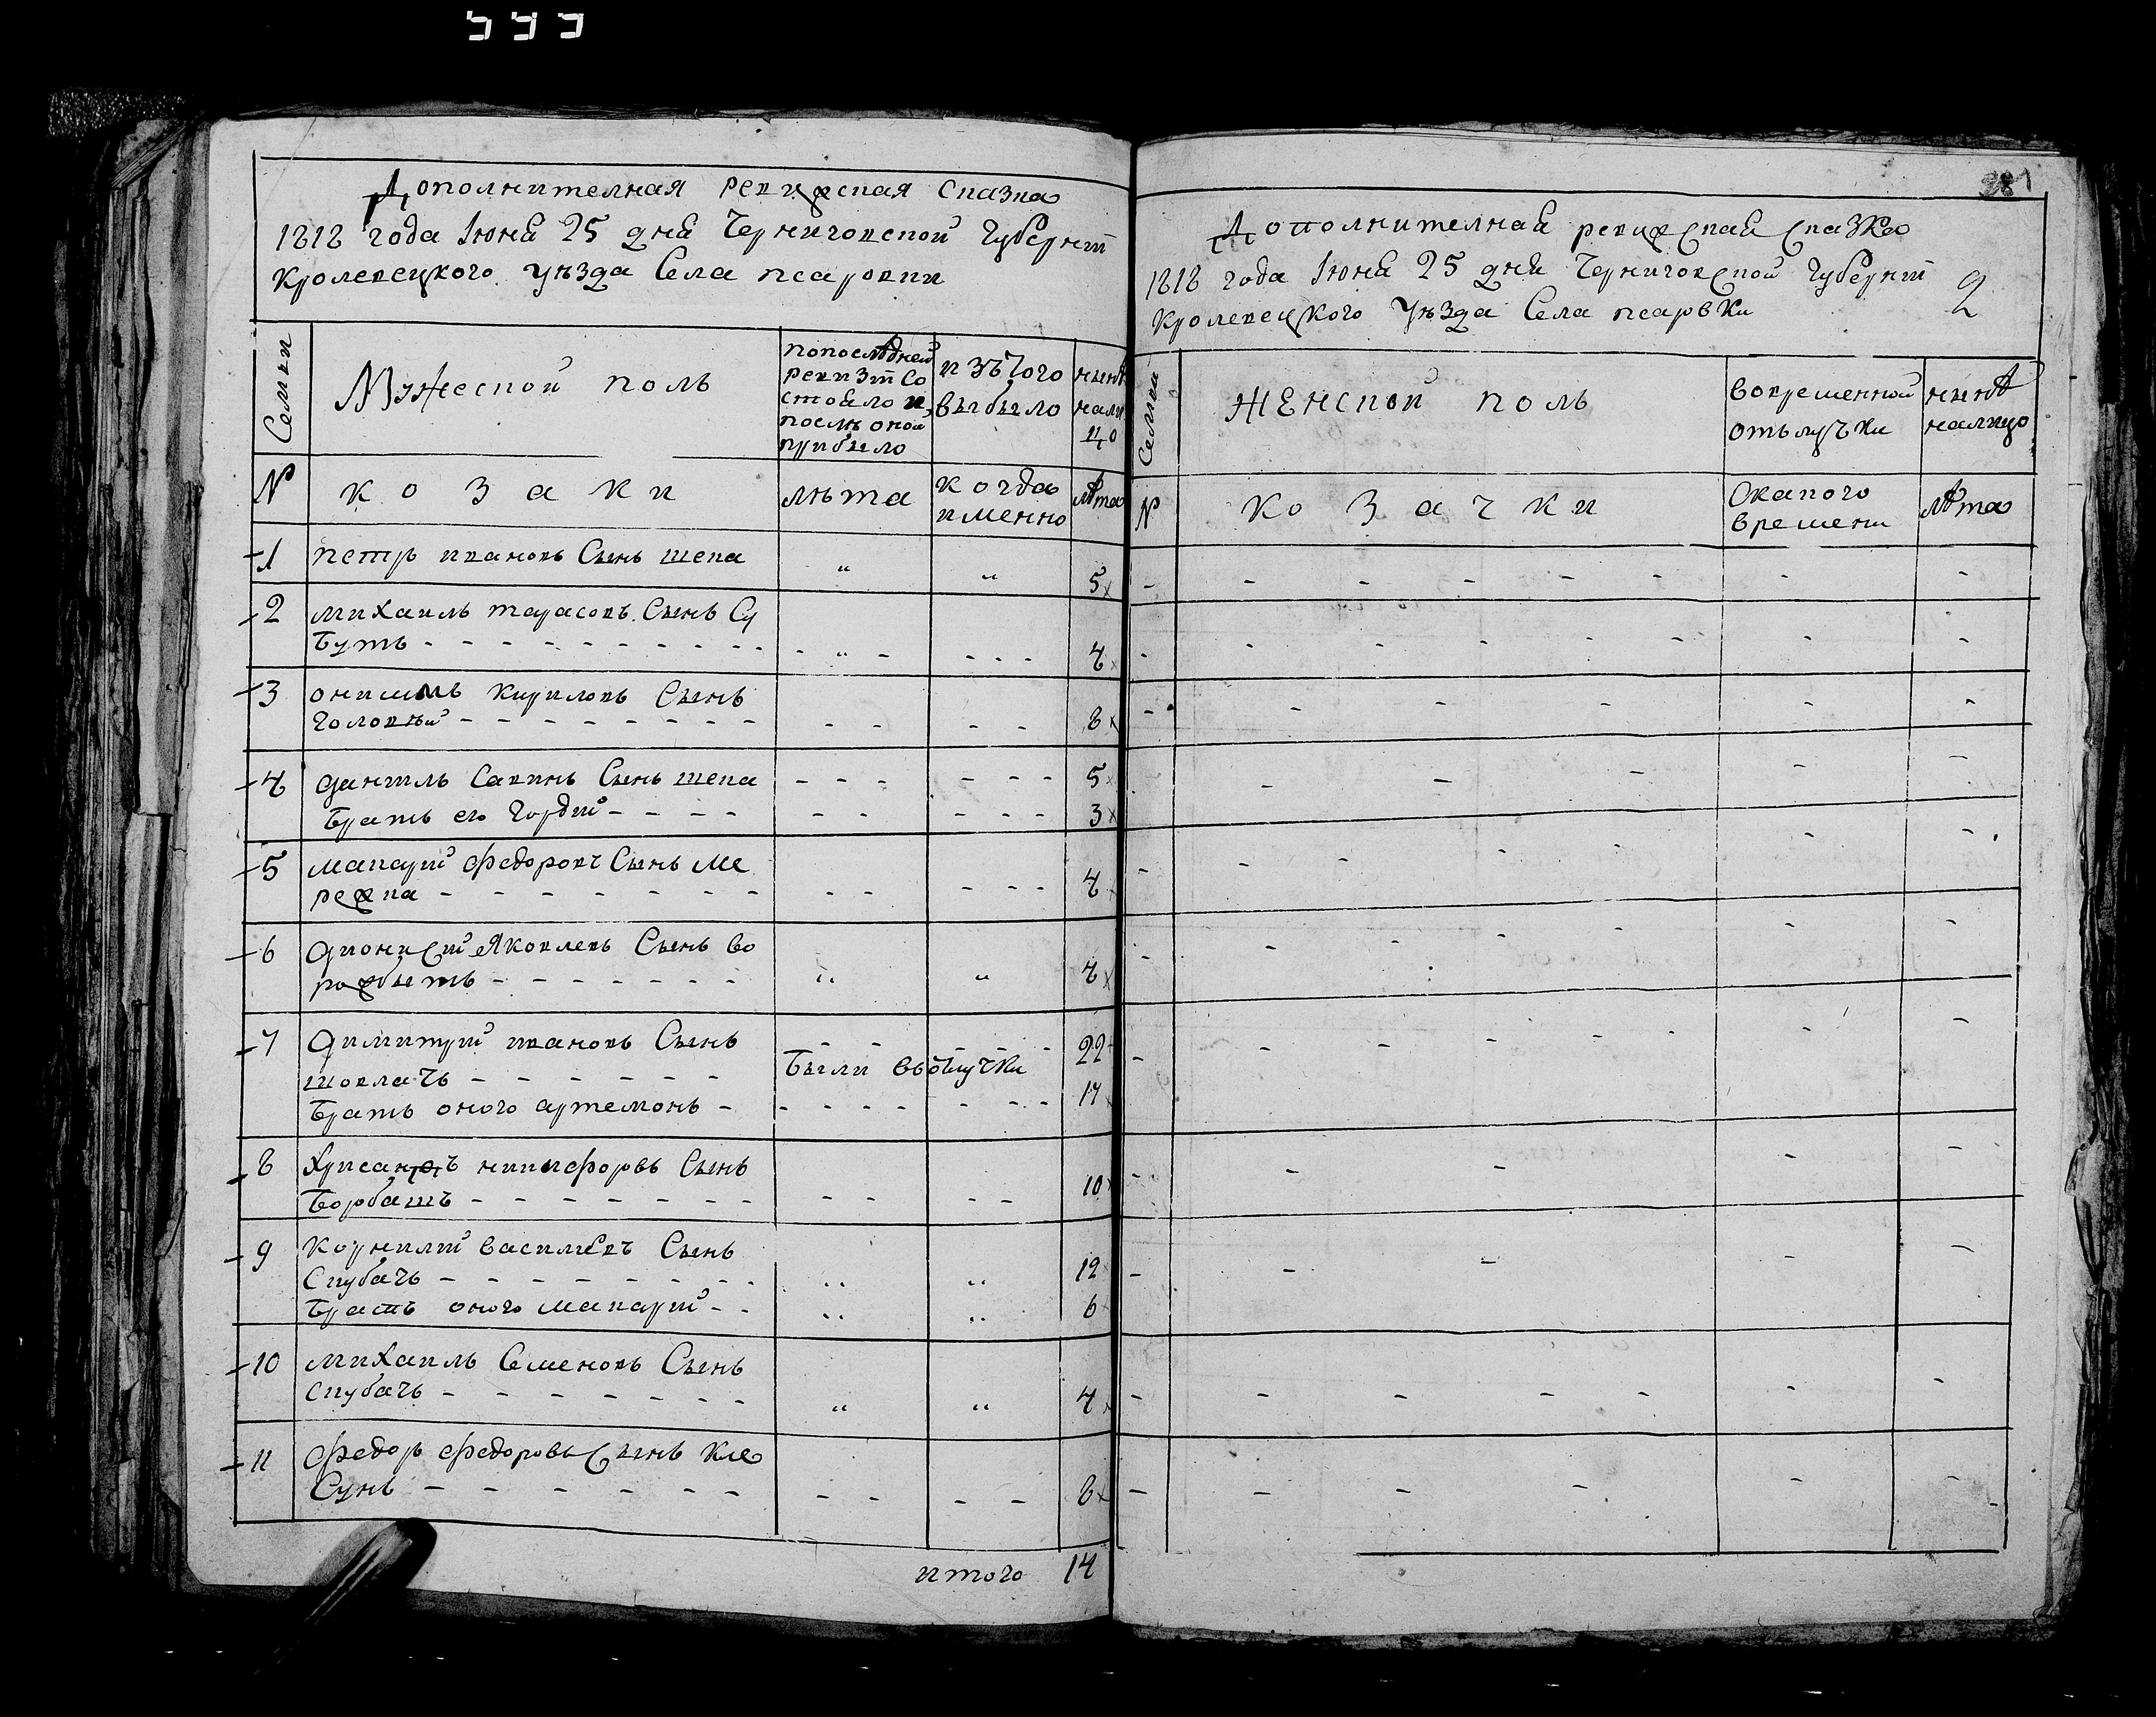 Дополнителная ревизская сказка
1818 года Июня 25 дня Черниговской Губернiи
Кролевецкого уѣзда Села псаровки
Семьи
Мужеской поль
попослѣдней ревизiи Состояло и послѣ оной прибыло
изъ того выбыло
нынѣ налицо
№
козаки
лѣта
когда именно
лѣта
1 петръ ивановъ Сынъ шепа " " 5
2 михаилъ тарасовъ Сынъ Су
бутъ - - - - 4
3 онисимъ кириловъ Сынъ
головнiй - - - - 8
4 данiилъ Савинъ Сынъ шепа - - - - 5
братъ его гордiй - - - - 3
5 макарiй федоровъ Сынъ ме
режка - - - - 4
6 дионисiй Яковлевъ Сынъ во
рожбытъ - " " 4
7 димитрiй ивановъ Сынъ - - 22
шовлачъ - - были вотлучки
братъ оного артемонъ - - - 17
8 Хрисанфъ никифоровъ Сынъ
борбашъ - - - - 10
9 корнилiй василiевъ Сынъ
Скубачъ - " " 12
братъ оного макарiй - " " 6
10 михаилъ Семеновъ Сынъ
скубачъ - " " 4
11 федоръ федоровъ Сынъ кле
Сунъ - - - - 8
итого 14
281
Дополнителная ревизская сказка
1818 года Июня 25 дня Черниговской Губернiи
2
Кролевецкого уѣзда Села псаровки
Семьи
женской поль
вовременной отълучки
нынѣ налицо
№
козачки
Скакого времени
лѣта